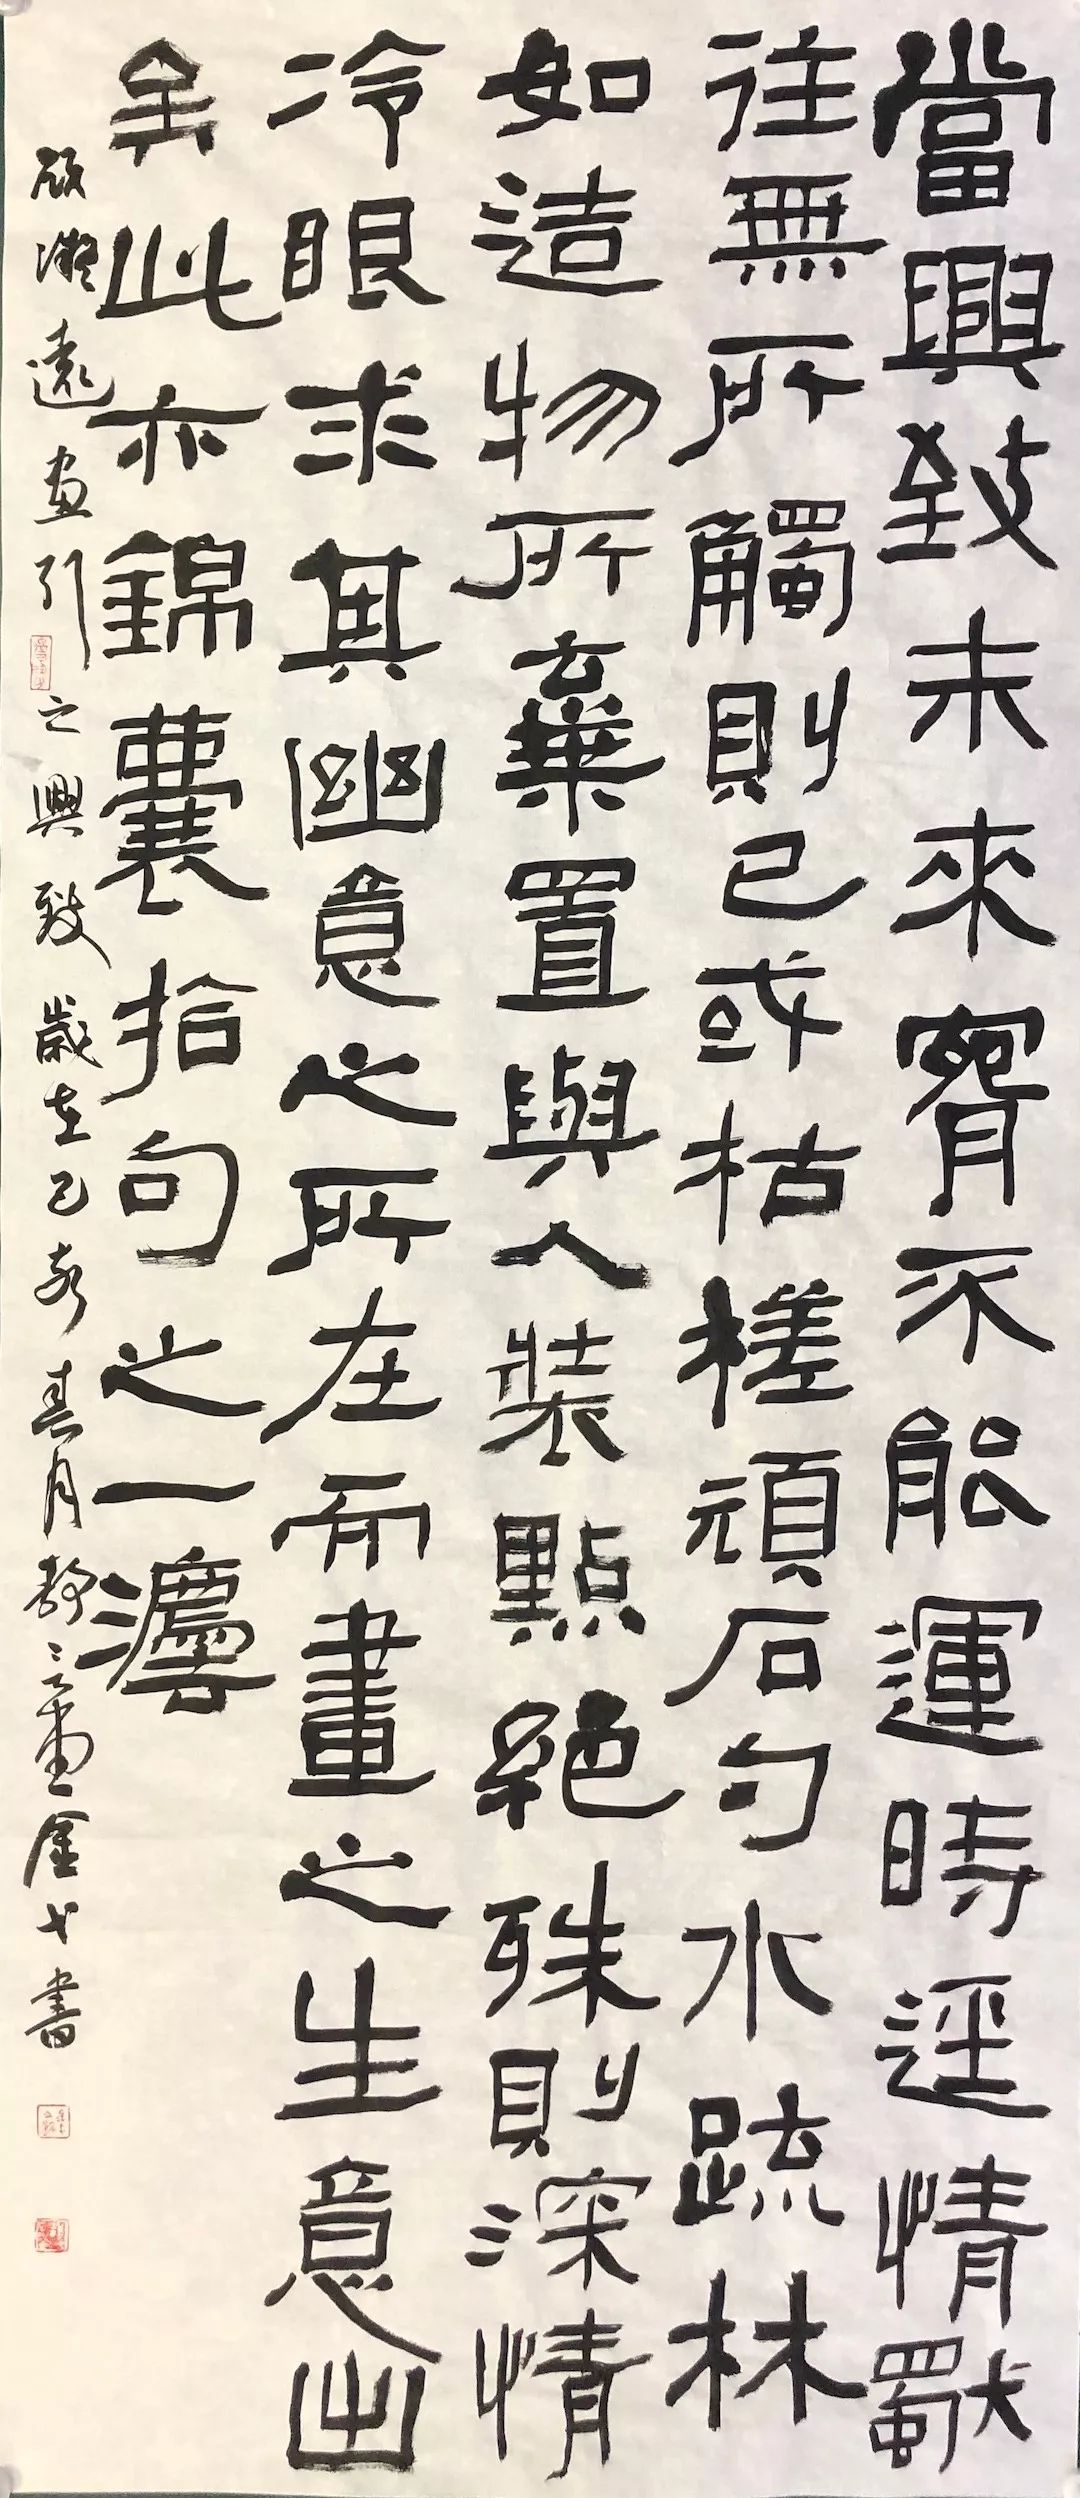 當興致未來腕不能運時逕情獨
往無所觸則已或枯槎頑石勺水疏林
如造物所棄置與人裝點絕殊則深情
冷眼求其幽意之所在而畫之生意出
矣此亦錦囊拾句之一法
顧凝遠畫引之興致歲在己亥春月靜之堂金戈書